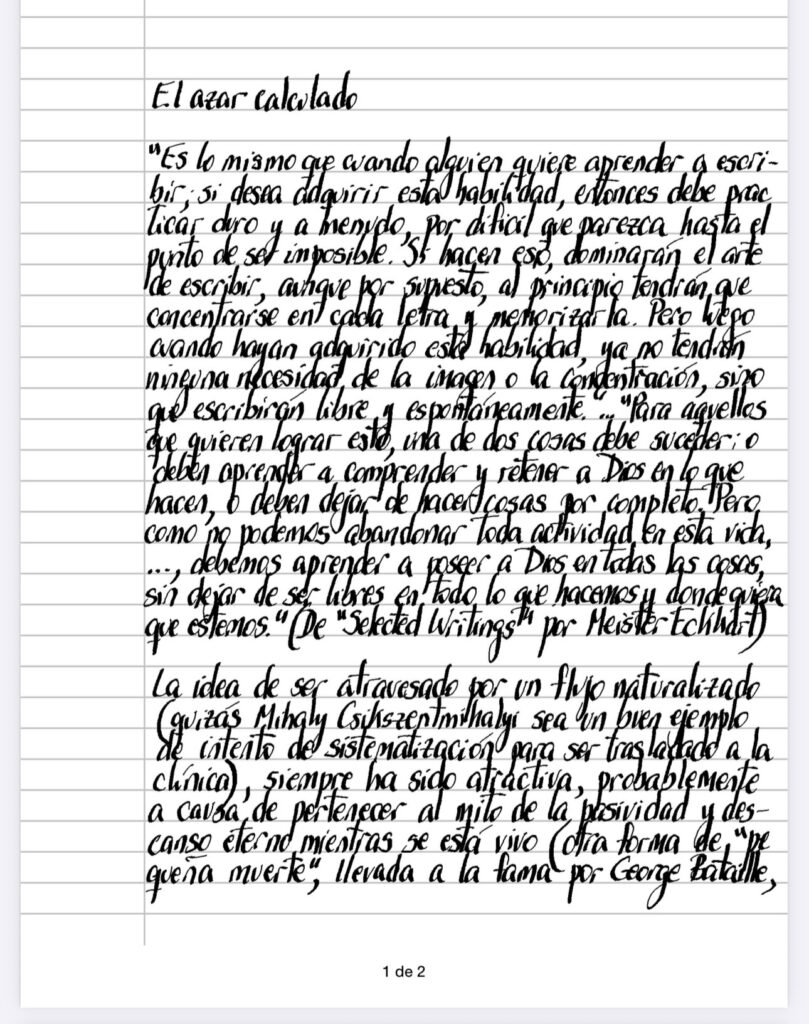 El azar calculado
"Es lo mismo que cuando alguien quiere aprender a escri-
bir; si desea adquirir esta habilidad, entonces debe prac
ticar duro y a menudo, por difícil que parezca hasta el
punto de ser imposible. Si hacen eso, dominarán el arte
de escribir, aunque por supuesto, al principio tendrán que
concentrarse en cada letra y memorizarla. Pero luego
cuando hayan adquirido esta habilidad, ya no tendrán
ninguna necesidad de la imagen o la concentración, sino
que escribirán libre y espontáneamente."... "Para aquellos
que quieren lograr esto, una de dos cosas debe suceder: o
deben aprender a comprender y retener a Dios en lo que
hacen, o deben dejar de hacer cosas por completo. Pero
como no podemos abandonar toda actividad en esta vida,
..., debemos aprender a poseer a Dios en todas las cosas,
sin dejar de ser libres en todo lo que hacemos y dondequiera
que estemos." (De "Selected Writings" por Meister Eckhart)
La idea de ser atravesado por un flujo naturalizado
(quizás Mihaly Csikszentmihalyi sea un buen ejemplo
de intento de sistematización para ser trasladado a la
clínica), siempre ha sido atractiva, probablemente
a causa de pertenecer al mito de la pasividad y des-
canso eterno mientras se está vivo (otra forma de "pe
queña muerte", llevada a la fama por George Bataille,
1 de 2